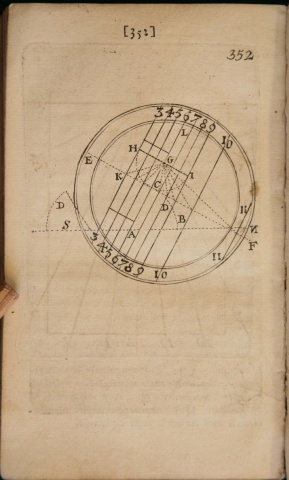 [352]
352
3 4 5 6 7 8 9 10
L
E
H
G
K
I
C
D
D
B
11
S
A
N
F
3 4 5 6 7 8 9 10
11